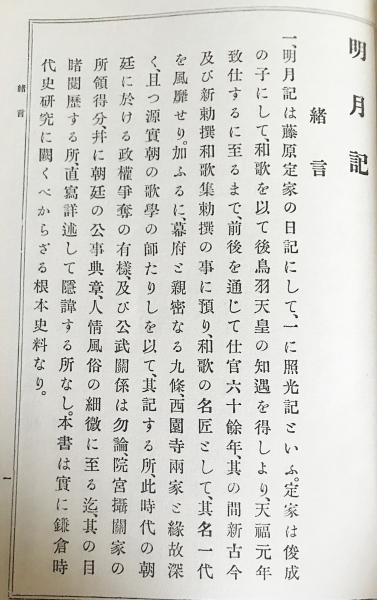 明月記
緒言
一、明月記は藤原定家の日記にして、一に照光記といふ。定家は俊成
の子にして、和歌を以て後鳥羽天皇の知遇を得しより、天福元年
致仕するに至るまで、前後を通じて仕官六十餘年、其の間新古今
及び新勅撰和歌集勅撰の事に預り、和歌の名匠として、其名一代
を風靡せり。加ふるに、幕府と親密なる九條、西園寺兩家と緣故深
く、且つ源實朝の歌學の師たりしを以て、其記する所、此時代の朝
廷に於ける政權爭奪の有樣、及び公武關係は勿論、院宮攝關家の
所領得分、幷に朝廷の公事典章、人情風俗の細微に至る迄、其の目
睹閱歷する所、直寫詳述して隱諱する所なし。本書は實に鎌倉時
代史硏究に闕くべからざる根本史料なり。
緒言
一